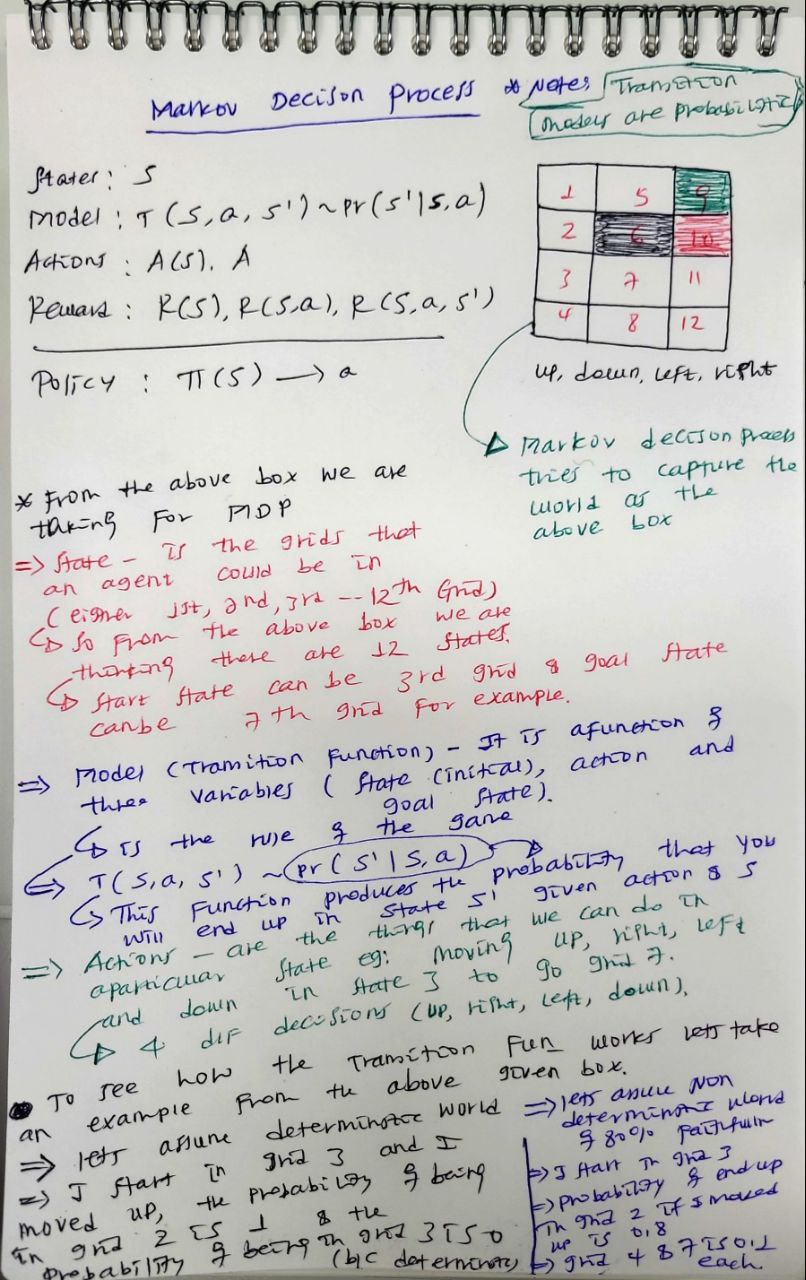 Markov Decison Process * Notes
Transition
models are probabilistic
States: S
Model: T(S, a, S') ~ Pr(S'|S, a)
Actions: A(S), A
Reward: R(S), R(S, a), R(S, a, S')
Policy: π(S) → a
1 5 9
2 6 10
3 7 11
4 8 12
up, down, left, right
Markov decison process
tries to capture the
world as the
above box
* From the above box we are
taking For MDP
=> State - is the grids that
an agent could be in
(eigher 1st, 2nd, 3rd --- 12th Grid)
↳ So From the above box we are
thinking there are 12 states.
↳ Start state can be 3rd grid & goal state
canbe 7th grid For example.
=> Model (Transition Function) - It is afunction of
three variables (State (initial), action and
goal state).
↳ is the rule of the game
=> T(S, a, S') ~ Pr(S'|S, a)
↳ This Function produces the probability that you
will end up in state S' given action & S
=> Actions - are the things that we can do in
aparticular state eg: moving up, right, left
and down in state 3 to go grid 7.
↳ 4 dif decasions (up, right, left, down).
● To see how the Transition Fun works lets take
an example From the above given box.
=> lets assume determinstic world
=> I start in grid 3 and I
moved up, the probability of being
in grid 2 is 1 & the
probability of being in grid 3 is 0
(b/c determinstic)
=> lets assume Non
determinstic world
of 80%
=> I start in grid 3
=> probability of end up
in grid 2 if I moved
up is 0.8
=> grid 4 & 7 is 0.1
each.